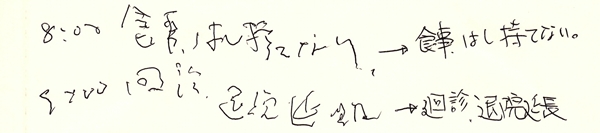 8:00 食事はし持てない → 食事はし持てない。
9:00 回診 退院延長 → 廻診、退院延長